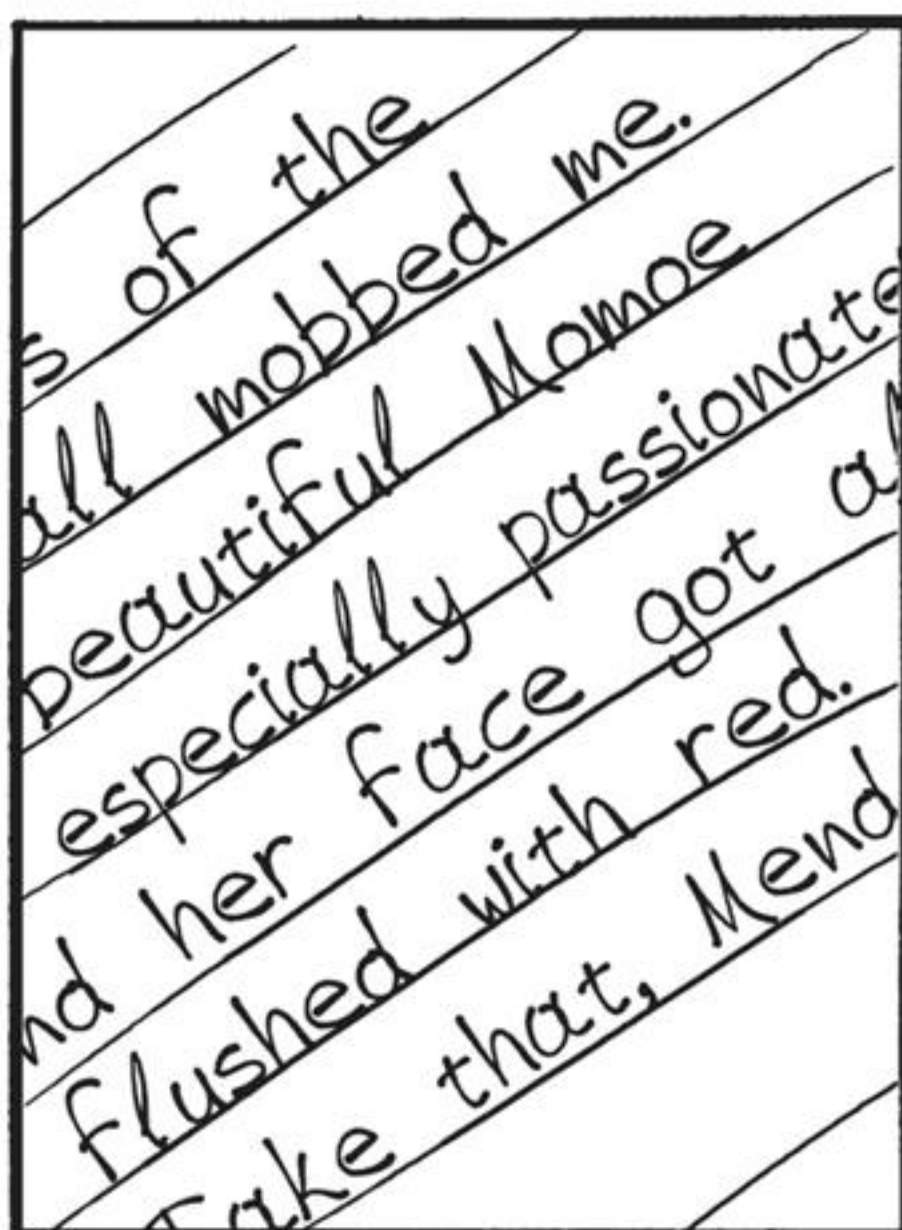 s of the
all mobbed me.
beautiful Momoe
especially passionate
nd her face got al
flushed with red.
Take that, Mend